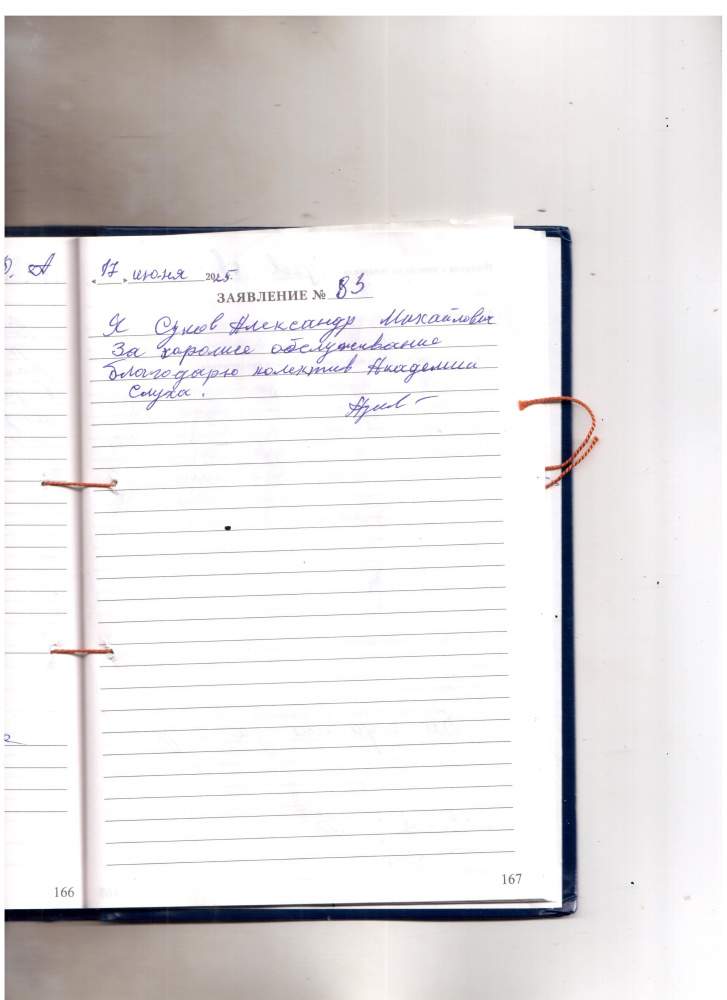 А
"17" июня 2025.
ЗАЯВЛЕНИЕ № 83
Я Сунов Александр Михайлович
За хорошее обслуживание
благодарю колектив Академии
Слуха.
166
167